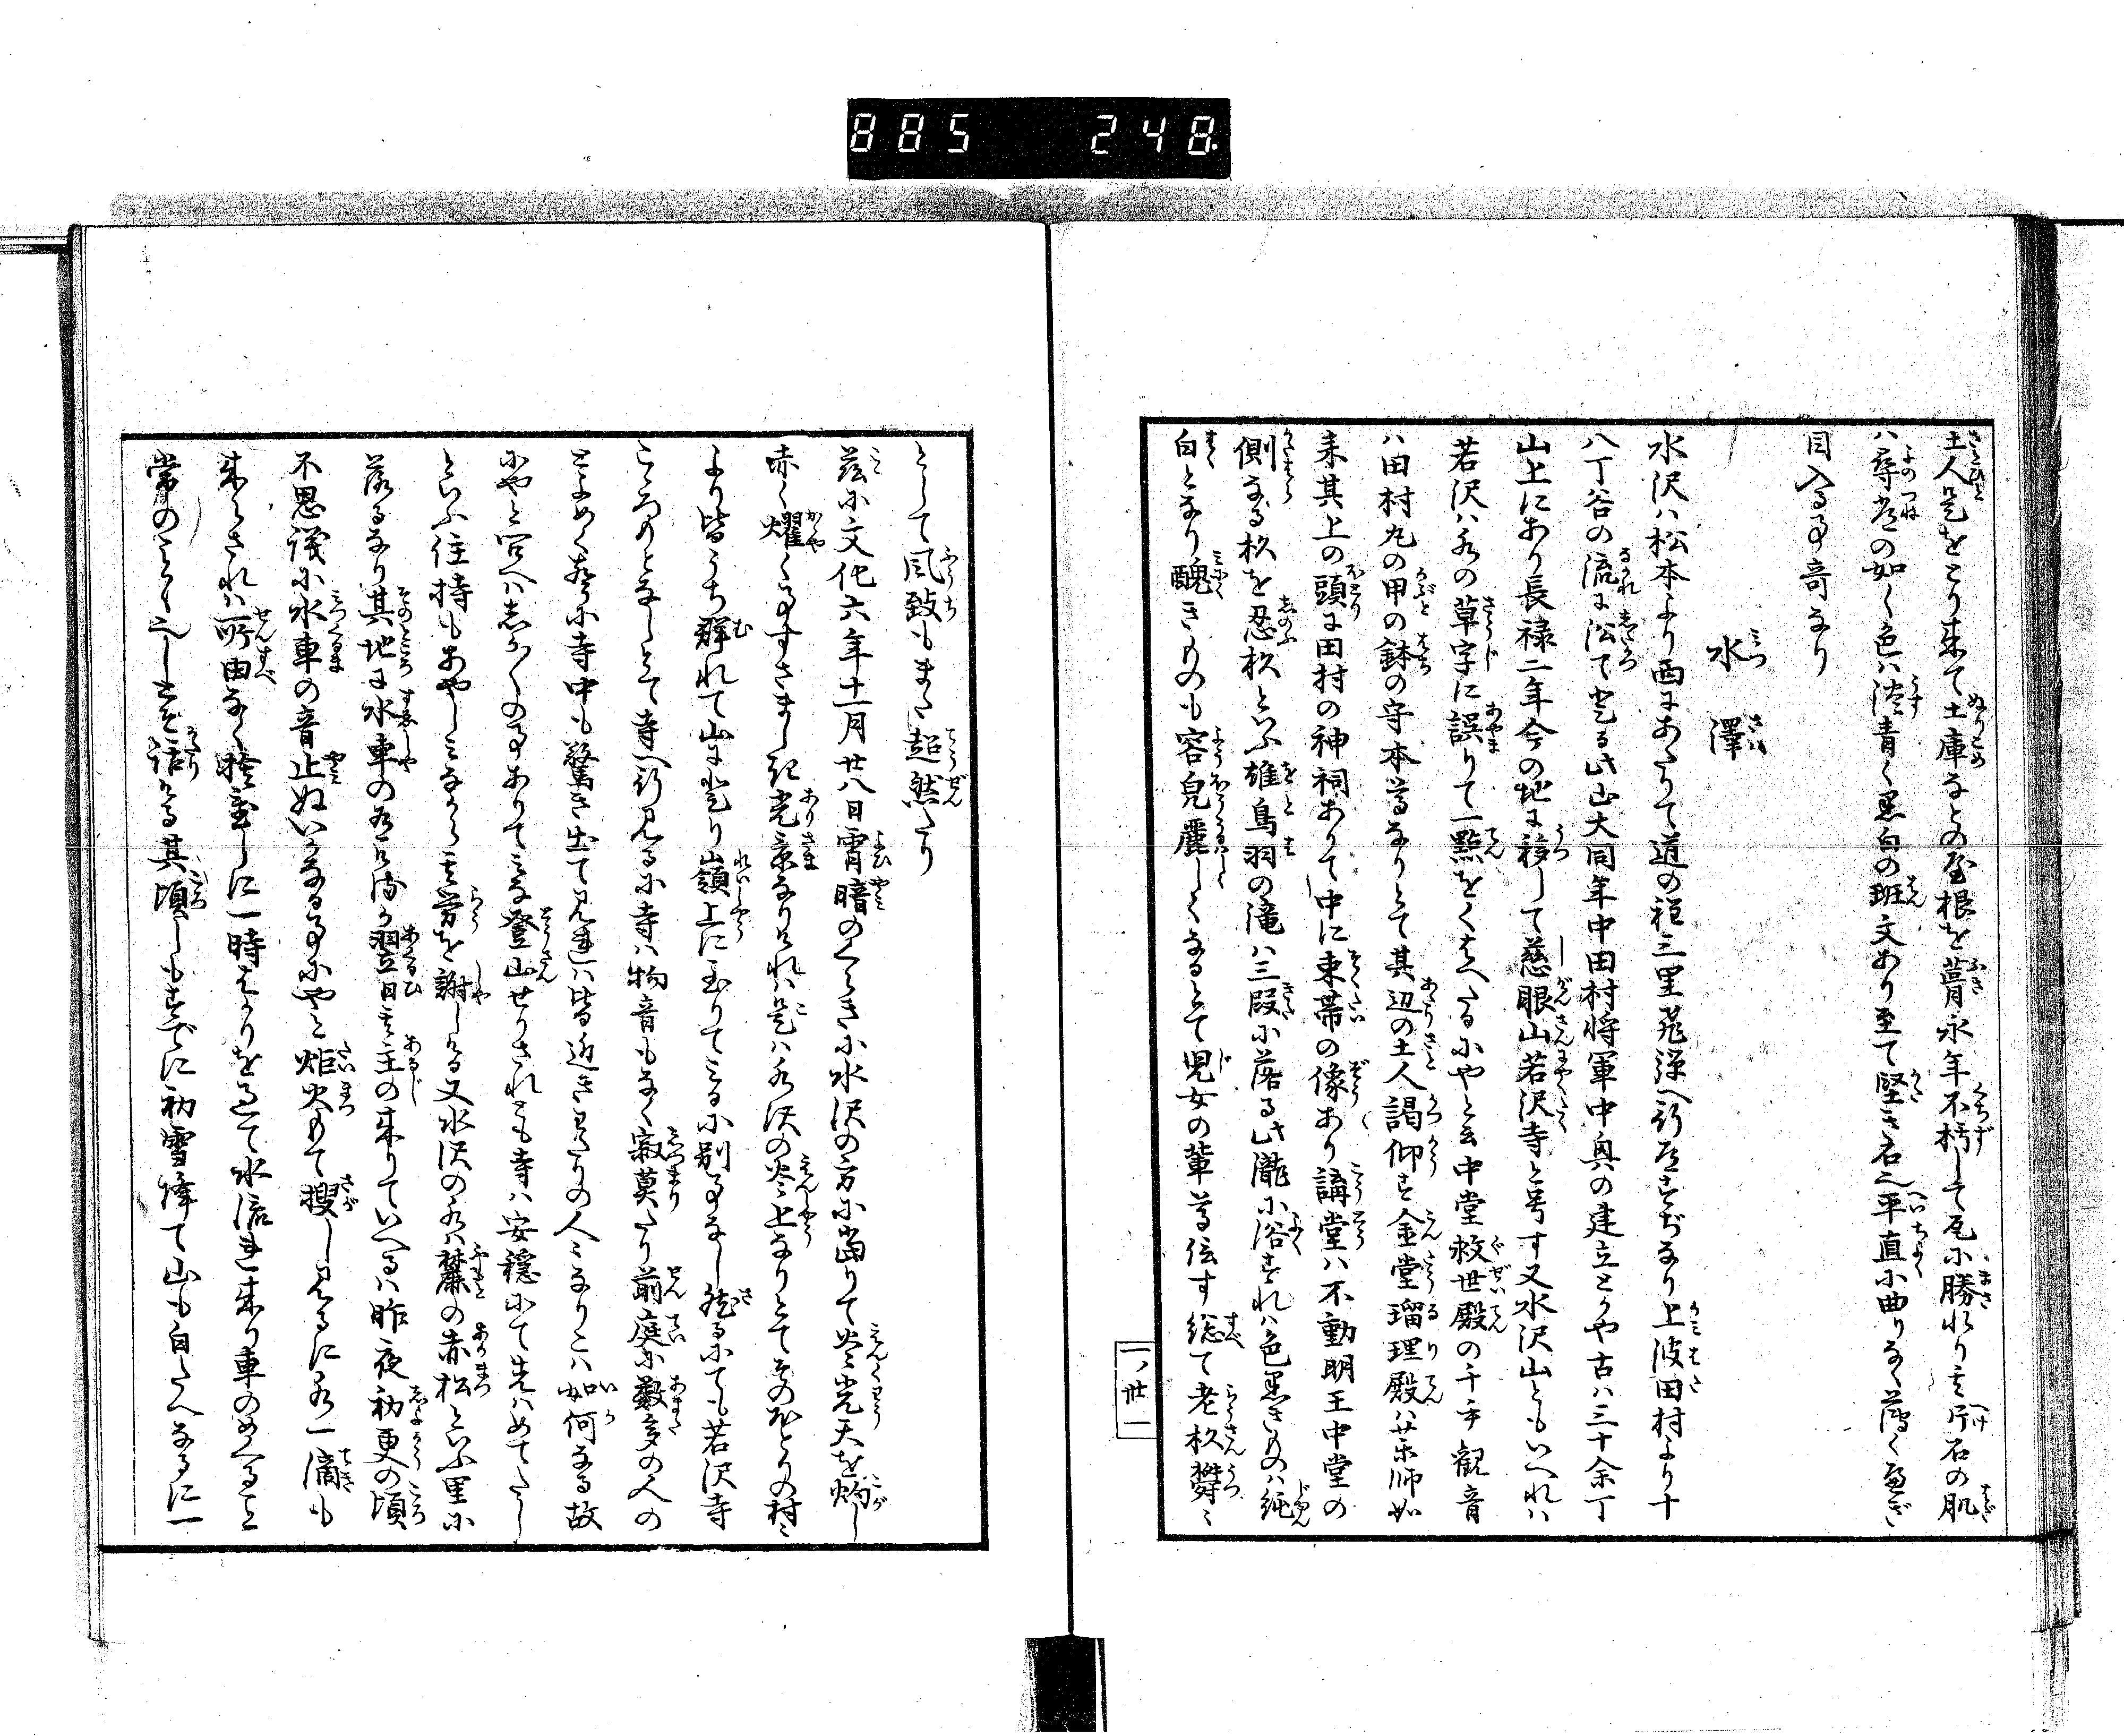 885 248
土人是をとり来て土庫などの屋根を葺永年不朽して瓦に勝れり其片石の肌
ハ尋常の如く色ハ淡青く黒白の班文あり至て堅き石也平直に曲りなく薄くへぎ
目入る事奇なり
水澤
水沢ハ松本より西にあたりて道の程三里飛弾へ行道すぢなり上波田村より十
八丁谷の流に沿て登る此山大同年中田村将軍中興の建立とかや古ハ三十余丁
山上にあり長禄二年今の地に移して慈眼山若沢寺と号す又水沢山ともいへれハ
若沢ハ水の草字に誤りて一點をくはへたるにやと云中堂救世殿の千手観音
ハ田村丸の甲の鉢の守本尊なりとて其辺の土人謁仰す金堂瑠理殿ハ薬師如
来其上の頭に田村の神祠ありて中に束帯の像あり講堂ハ不動明王中堂の
側なる杉を忍杉といふ雄鳥羽の滝ハ三段に落る此瀧に浴すれハ色黒きものハ純
白となり醜きものも容皃麗しくなるとて児女の輩尊信す総て老杉欝々
一ノ丗一
として風致もまた超然たり
茲に文化六年十一月廿八日宵暗のくらきに水沢の方に当りて炎光天を灼し
赤く燿く事すさましき光景なりけれハ是ハ水沢の炎上なりとてそのほとりの村々
より皆うち群れて山に登り嶺上に至りてミるに別事なし然るにても若沢寺
こころのとなしとて寺へ行見るに寺ハ物音もなく寂莫たり前庭に数多の人の
とよめく声に寺中も驚き出て見れハ皆近きわたりの人々なりこハ如何なる故
にやと問へハしか〳〵の事ありてミな登山せりされとも寺ハ安穏にて先ハめてたし
といふ住持もあやしミながら其労を謝しける又水沢の水ハ麓の赤松といふ里に
落るなり其地に水車の有ける翌日其主の来りていへるハ昨夜初更の頃
不思議に水車の音止ぬいかなる事にやと炬火もて捜し見るに水一滴も
来らされハ所由なく捨置しに一時はかりを過て水流れ来り車のめくること
常のことくなりしとそ話ける其頃しもすでに初雪降て山も白たへなるに一